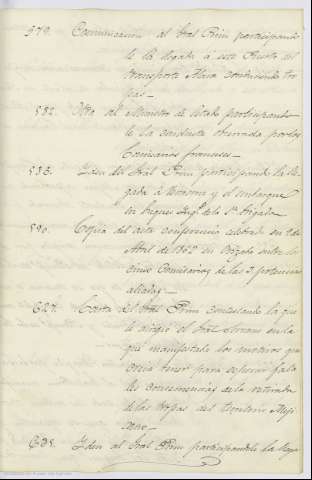 579. Comunicacion al Gral Prim participando
le la llegada á este Puerto del
transporte Alava conduciendo tro
pas-
582. Otra al Ministro de Estado participando
le la conducta observada por los
Comisarios franceses-
586. Iden del Gral Prim participando la lle
gada á Veracruz y el embarque
en buques de la Brigada
590. Copia del acta conferencia celebrada en 9 de
Abril de 1862 en Orizaba entre los
Comisarios de las 3 potencias
aliadas-
627. Carta del Gral Prim contestando la que
le dirigio el Gral Serrano en la
que manifestaba los motivos que
creia tener para suponer fata
les consecuencias de la retirada
de las tropas del territorio Meji
cano-
635. Iden al Gral Prim participandole la llega